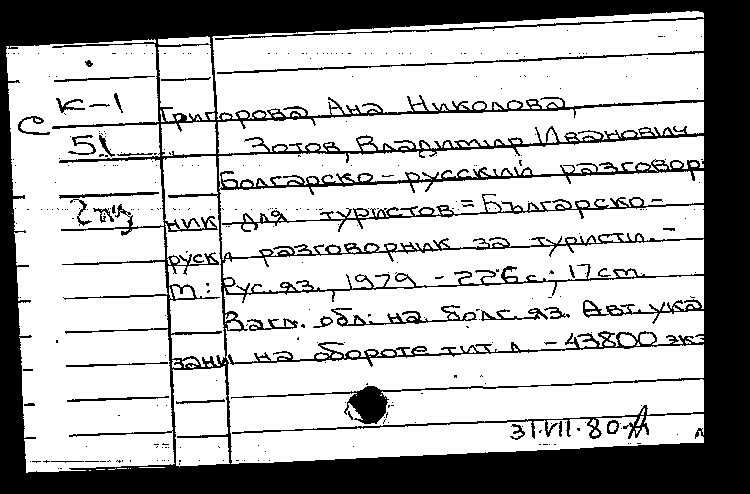 К-1
С
51
2 тиз
Григорова, Ана Николова,
Зотов, Владимир Иванович
Болгарско-русский разговор
ник для туристов = Българско-
руски разговорник за туристи. -
М.: Рус. яз., 1979 - 226 с.; 17 cm.
Загл. обл: на болг. яз. Авт. ука
заны на обороте тит. л - 43800 экз
31.VII.80